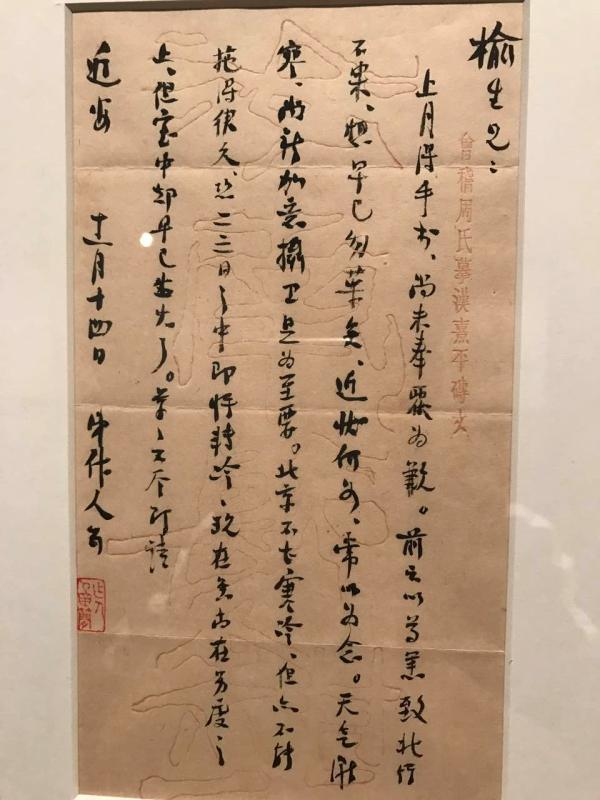 榆生兄：
上月得手书、尚未奉覆为歉。前云以尊恙致北行
不果、想早已勿药矣、近状何如、常以为念。天气渐
寒、尚祈加意摄卫是为至要。北京不甚寒冷、但亦不能
拖得很久、恐二三日之中即将转冷、现在虽尚在度之
上、但室中却早已生火了。草草不尽即请
近安 十一月十四日 作人
會稽周氏摹漢熹平磚文